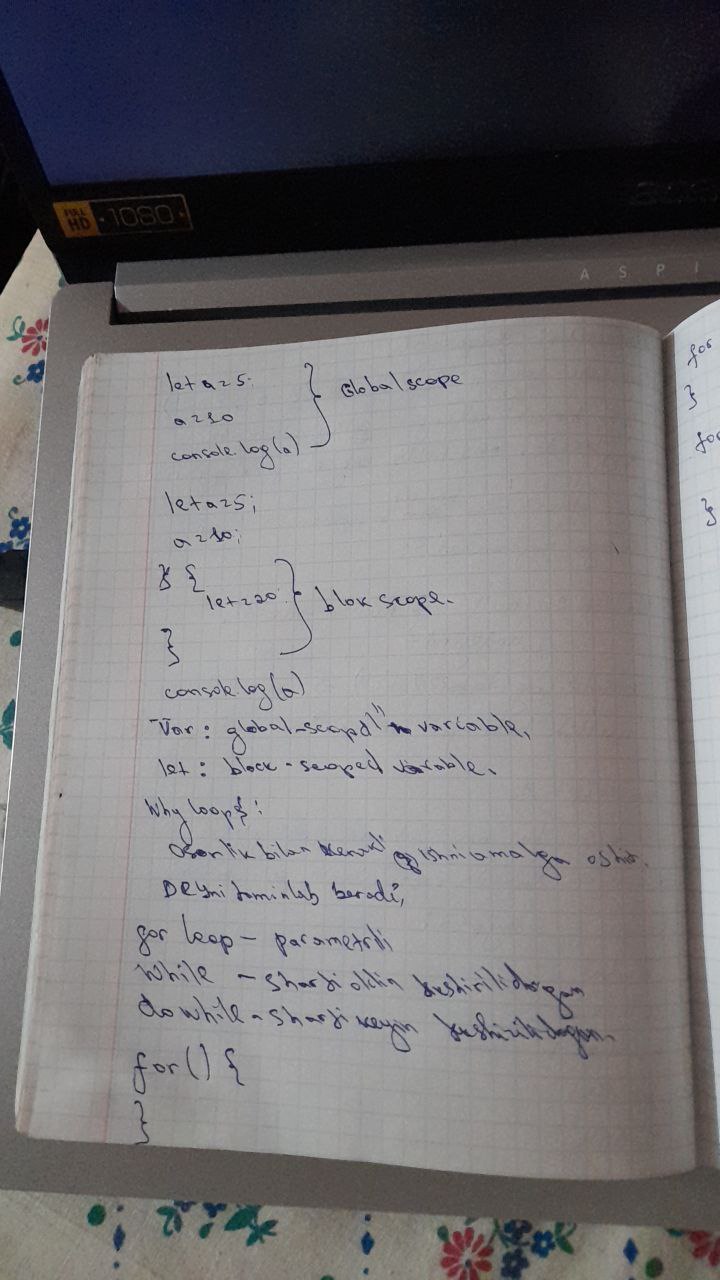 FULL HD 1080
ASPI
let a=5;
a=10
console.log(a)
Global scope
let a=5;
a=10;
{
let=20;
}
blok scope.
console log(a)
"Var: global-scoped" variable,
let: block-scoped variable.
Why loop:
Osonlik bilan kerakli ishni amalga oshir.
DRYni taminlab beradi,
for loop - parametrli
While - sharti oldin tekshiriladigan
do while - sharti keyin tekshiriladigan.
for() {
}
for
}
for
}